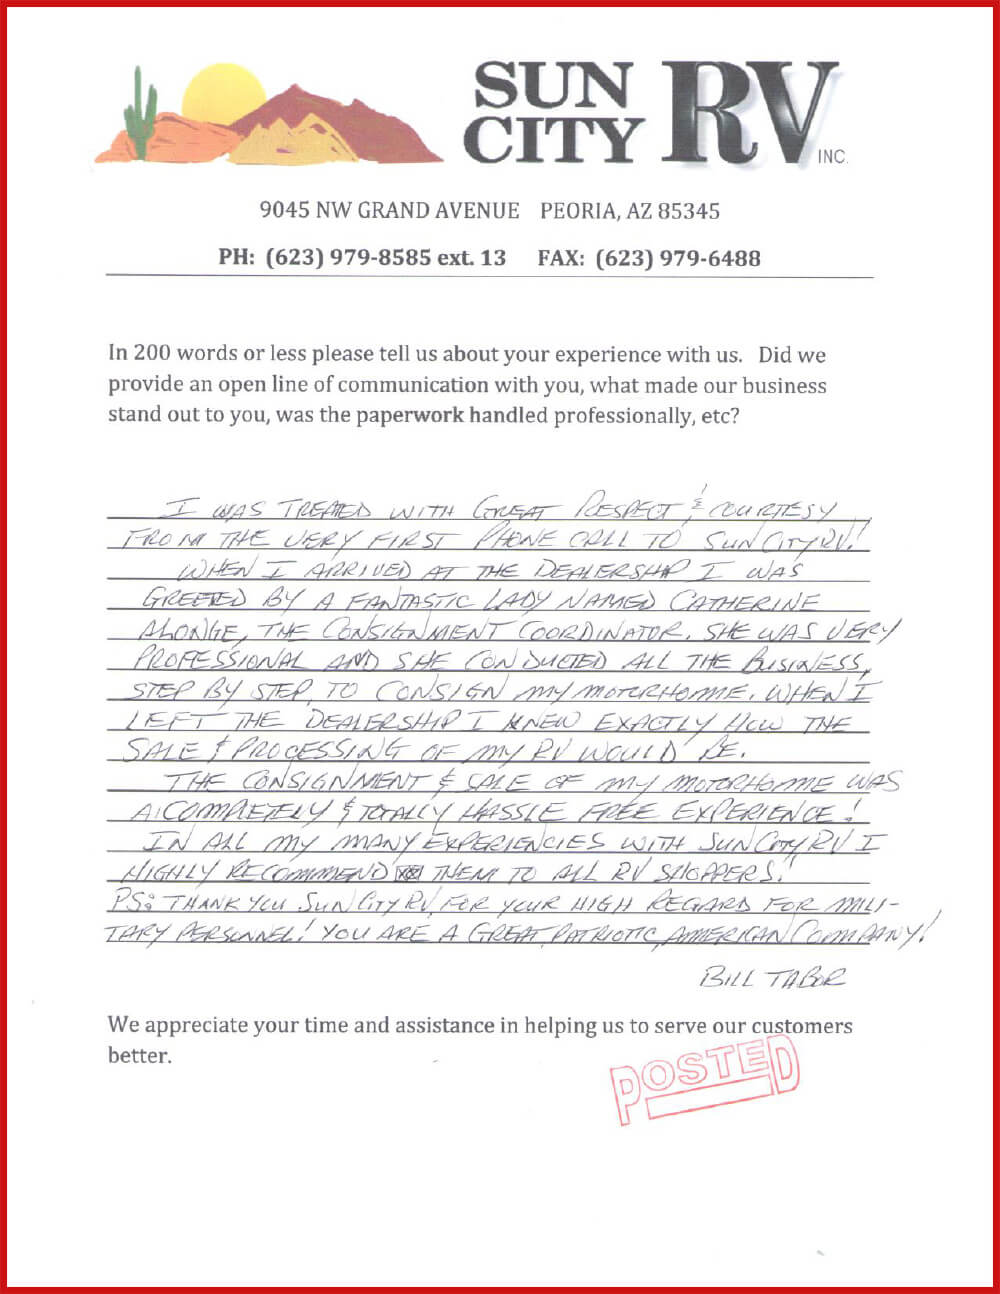 SUN CITY RV INC.
9045 NW GRAND AVENUE PEORIA, AZ 85345
PH: (623) 979-8585 ext. 13 FAX: (623) 979-6488
In 200 words or less please tell us about your experience with us. Did we
provide an open line of communication with you, what made our business
stand out to you, was the paperwork handled professionally, etc?
I WAS TREATED WITH GREAT RESPECT & COURTESY
FROM THE VERY FIRST PHONE CALL TO SUN CITY RV!
WHEN I ARRIVED AT THE DEALERSHIP I WAS
GREETED BY A FANTASTIC LADY NAMED CATHERINE
ALONGE, THE CONSIGNMENT COORDINATOR. SHE WAS VERY
PROFESSIONAL AND SHE CONDUCTED ALL THE BUSINESS,
STEP BY STEP, TO CONSIGN MY MOTORHOME. WHEN I
LEFT THE DEALERSHIP I KNEW EXACTLY HOW THE
SALE & PROCESSING OF MY RV WOULD BE.
THE CONSIGNMENT & SALE OF MY MOTORHOME WAS
A COMPLETELY & TOTALLY HASSLE FREE EXPERIENCE!
IN ALL MY MANY EXPERIENCIES WITH SUN CITY RV I
HIGHLY RECOMMEND THEM TO ALL RV SHOPPERS!
PS: THANK YOU SUN CITY RV, FOR YOUR HIGH REGARD FOR MILI-
TARY PERSONNEL! YOU ARE A GREAT, PATRIOTIC, AMERICAN COMPANY!
BILL TABOR
We appreciate your time and assistance in helping us to serve our customers
better.
POSTED